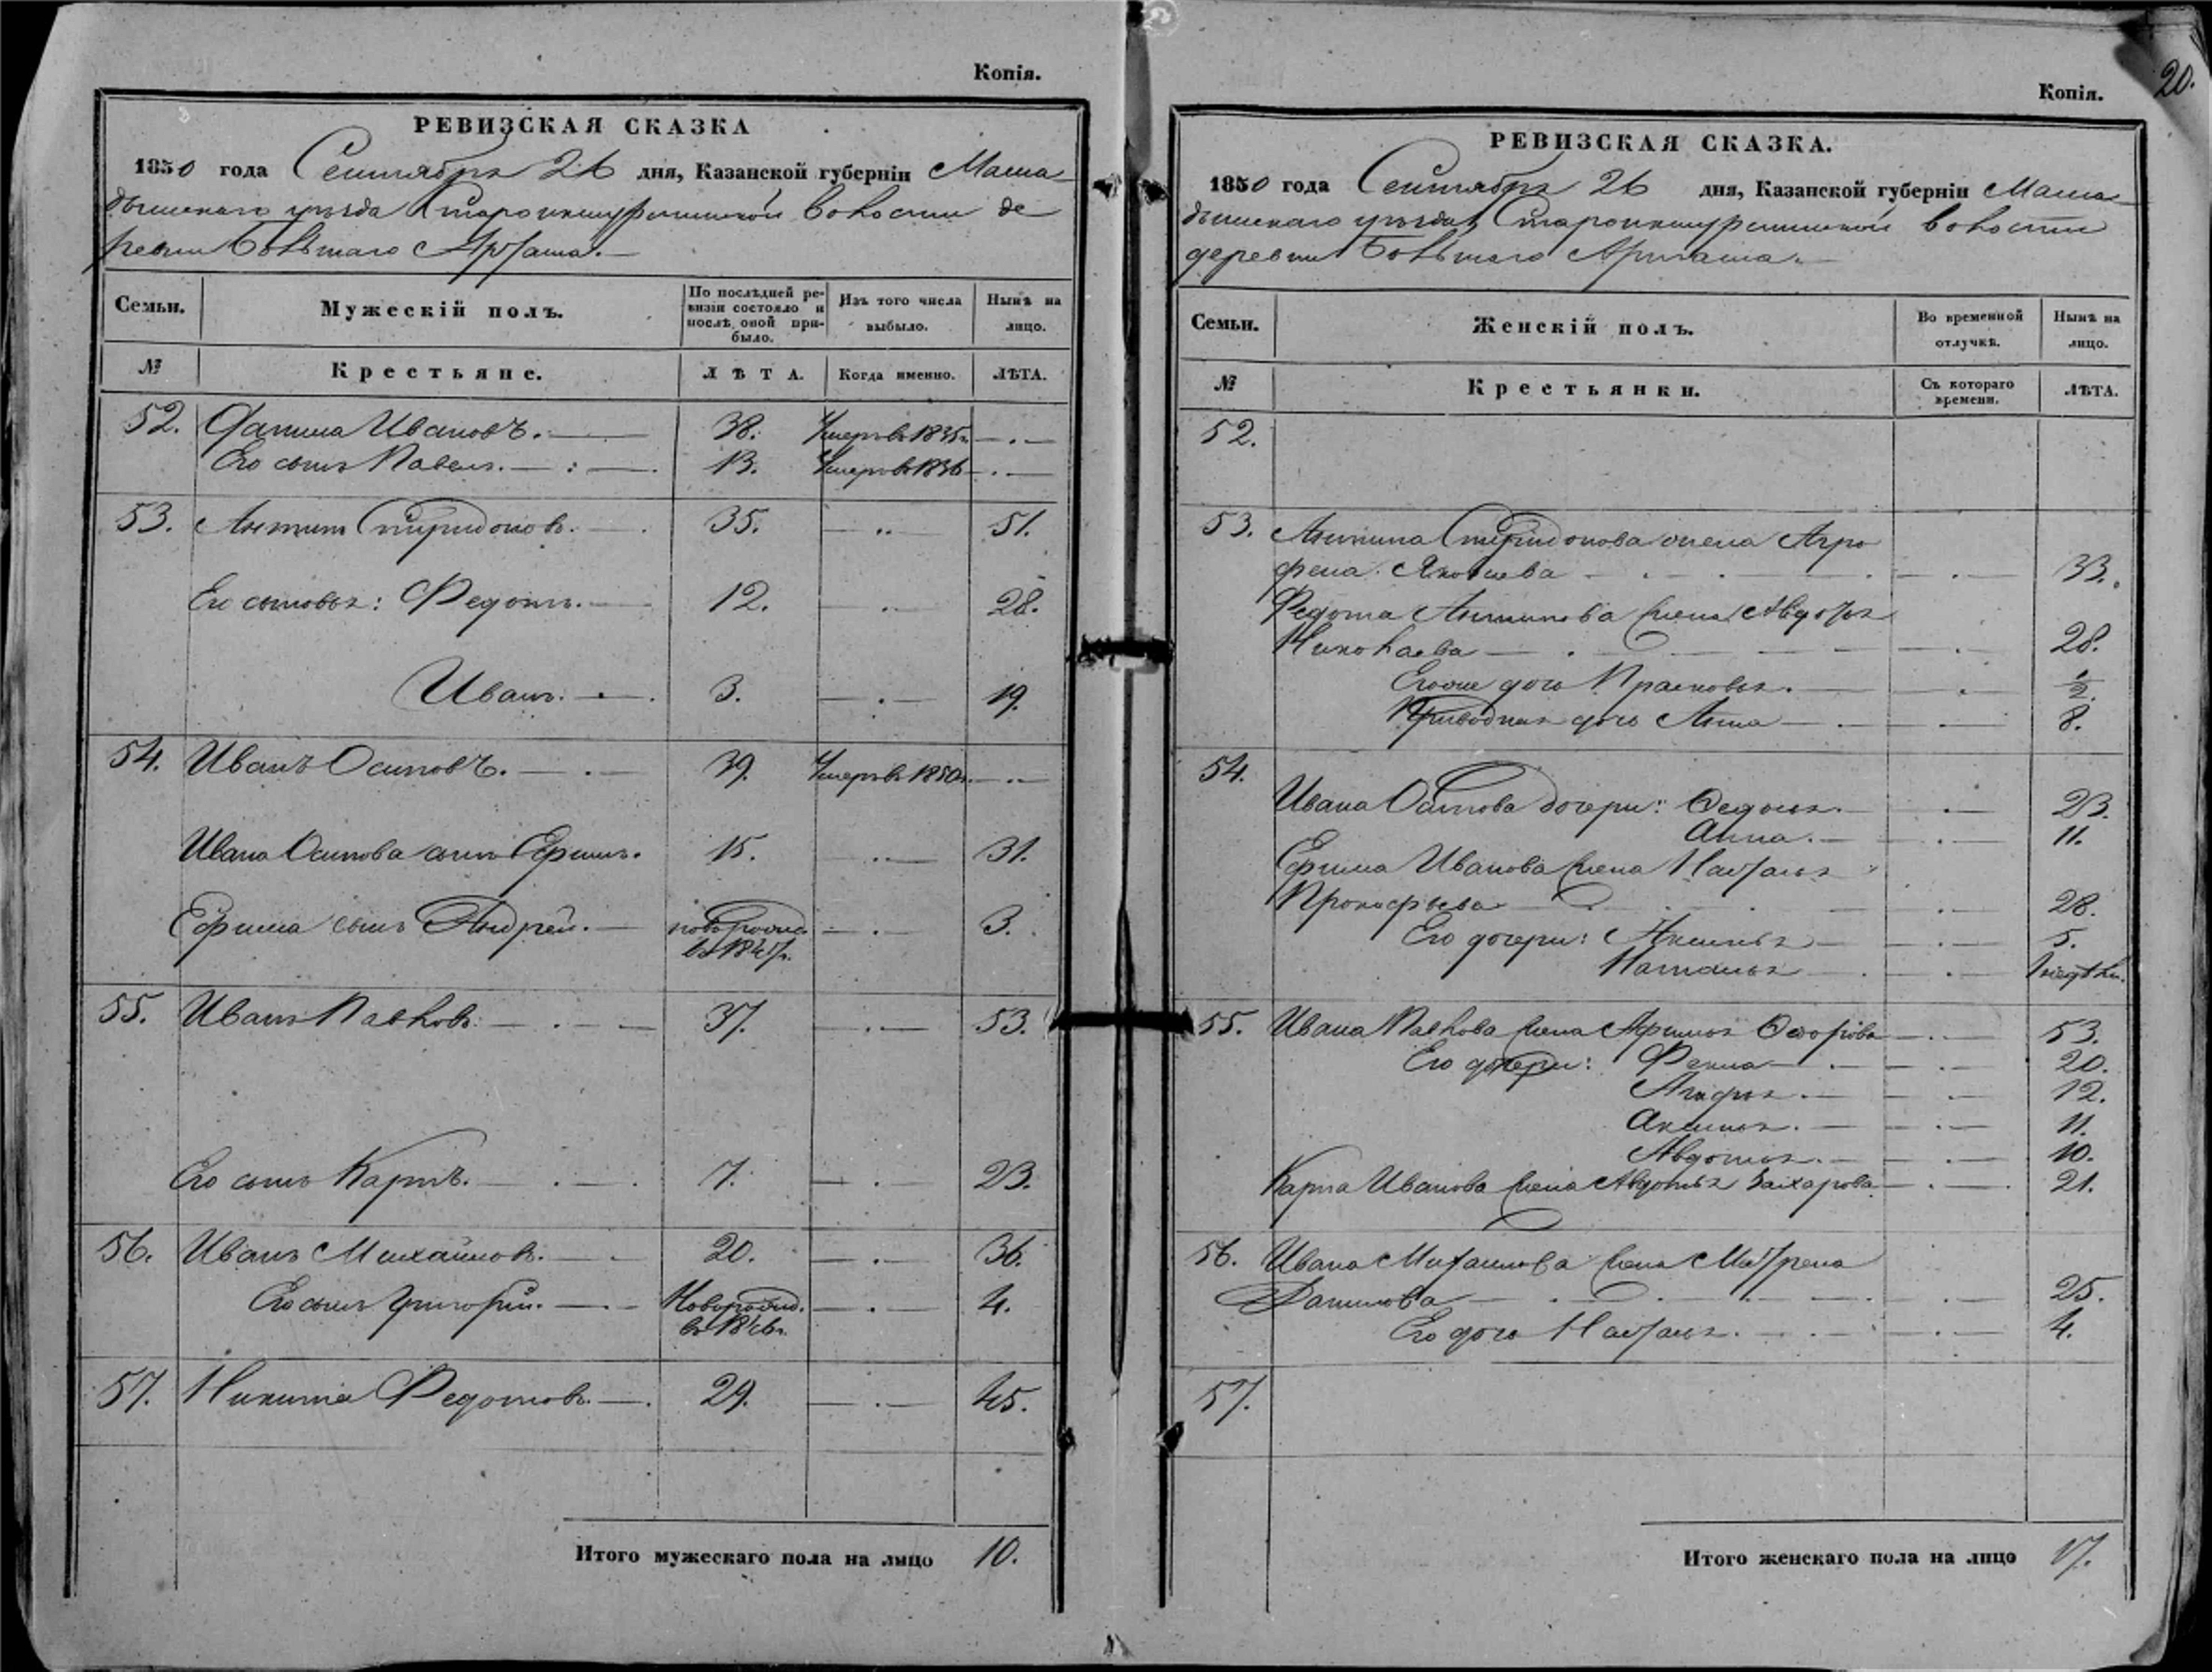 Копія.
РЕВИЗСКАЯ СКАЗКА
1850 года Сентября 26 дня, Казанской губерніи Мама-
дышскаго уѣзда Староикшурминской волости де-
ревни Большаго Арташа.
Семьи. Мужескій полъ. По послѣдней ре-визіи состояло и послѣ оной при-было. Изъ того числа выбыло. Нынѣ на лицо.
№ Крестьяне. ЛѢТА. Когда именно. ЛѢТА.
52. Ивановъ. 38. Умеръ въ 1835
Его сынъ Павелъ. 13. Умеръ въ 1836
53. Антипъ Спиридоновъ. 35. 51.
Его сыновья: Федотъ. 12. 28.
Иванъ. 3. 19.
54. Иванъ Осиповъ. 39. Умеръ въ 1850г.
Ивана Осипова сынъ Ефимъ. 15. 31.
Ефима сынъ Андрей. новорожд. 3.
въ 1847г.
55. Иванъ Павловъ. 37. 53.
Его сынъ Карпъ. 7. 23.
56. Иванъ Михайловъ. 20. 36.
Его сынъ Григорій. Новорожд. 4.
въ 1846г.
57. Никита Федотовъ. 29. 45.
Итого мужескаго пола на лицо 10.
Копія. 20.
РЕВИЗСКАЯ СКАЗКА.
1850 года Сентября 26 дня, Казанской губерніи Мама-
дышскаго уѣзда Староикшурминской волости
деревни Большаго Арташа.
Семьи. Женскій полъ. Во временной отлучкѣ. Нынѣ на лицо.
№ Крестьянки. Съ котораго времени. ЛѢТА.
52.
53. Антипа Спиридонова жена Агро
фена Яковлева 33.
Федота Антипова жена Авдотья
Николаева 28.
Его дочь Прасковья. ½
Приводная дочь Анна 8.
54.
Ивана Осипова дочери: Федосья. 23.
Анна. 11.
Ефима Иванова жена Наталья
Прокофьева 28.
Его дочери: Аксинья 5.
Наталья 1 недѣли.
55. Ивана Павлова жена Афимья Федорова 53.
Его дочери: Фекла 20.
Агафья. 12.
Аксинья. 11.
Авдотья. 10.
Карпа Иванова жена Авдотья Захарова 21.
56. Ивана Михайлова жена Матрена
Данилова 25.
Его дочь Наталья. 4.
57.
Итого женскаго пола на лицо 17.